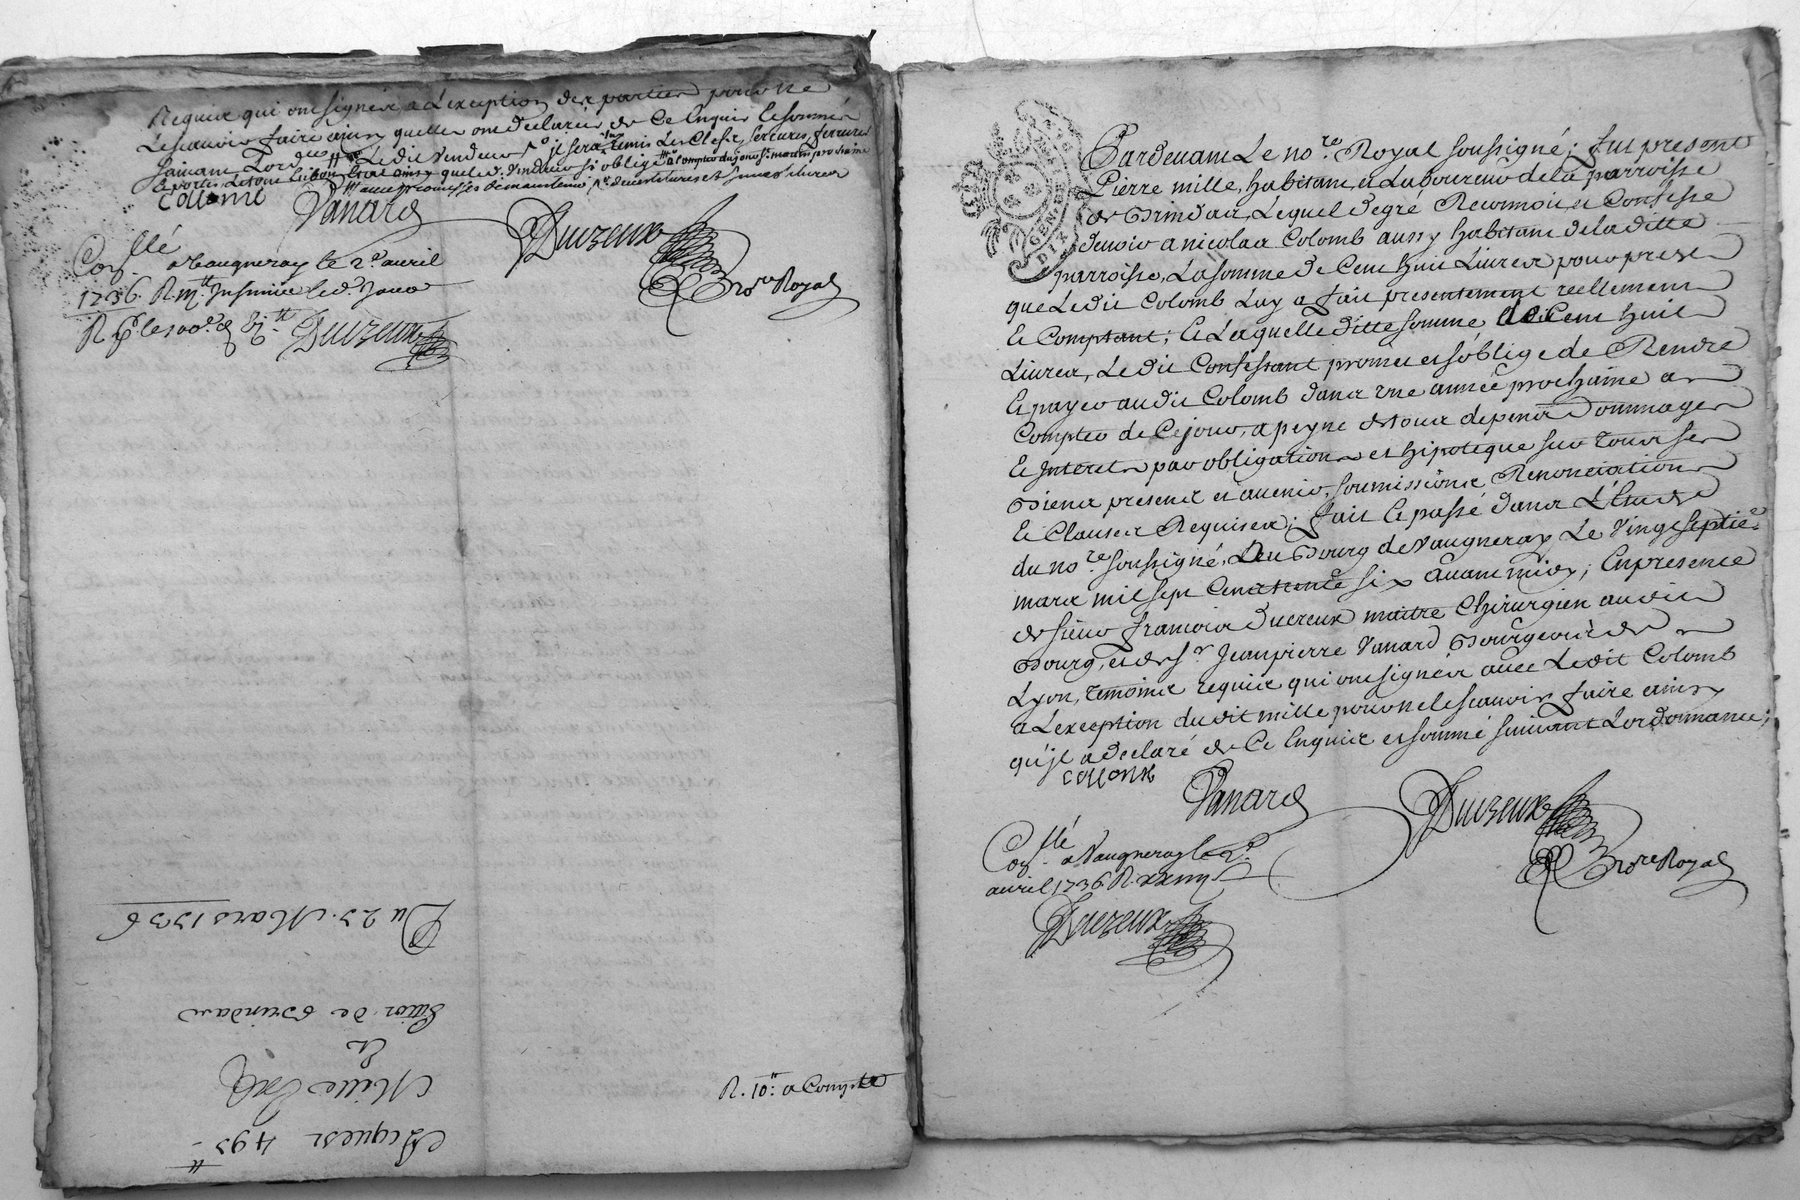 Requis qui ont signés a L'exception des parties pour ne
Le scavoir faire ainsy quelles ont declarées de Ce Enquis Et sommés
suivant L'ord.ce
Collomb
Vanard
Duereux
no.re Royal
Con.llé a Vaugneray le 2.e avril
1736. R.
Duereux
Du 27. Mars 1736
de Brindas
Et
Mille
Acquest 495.tt
R. 10.tt a Compte
GENER
DIX
Pardevant Le no.re Royal soussigné; fut present
Pierre mille, habitant et Laboureur de la parroisse
de Brindas, Lequel de gré Reconnoit et Confesse
devoir a nicolas Colomb aussy habitant de la ditte
parroisse, La somme de Cent huit Livres pour prest
que Le dit Colomb Luy a fait presentement reellement
Et Comptant; Et Laquelle ditte somme de Cent huit
Livres, Le dit Confessant promet et s'oblige de Rendre
Et payer au dit Colomb dans une année prochaine a
Compter de Cejour, a peyne de tous depens Dommages
Et Interets par obligation et hipoteque sur tous ses
Biens presents et avenir, soumissions, Renonciations
Et Clauses Requises; fait Et passé dans L'Etude
du no.re soussigné, au Bourg de Vaugneray Le Vingt septie.e
mars mil sept Cent trente six avant midy; En presence
de sieur francois Duereux maitre Chirurgien au dit
Bourg, et de s.r Jean pierre Vanard Bourgeois de
Lyon, temoins requis qui ont signés avec Le dit Colomb
a L'exception du dit mille pour ne le scavoir faire ainsy
qu'jl a declaré de Ce Enquis et sommé suivant L'ordonnance;
Collomb
Vanard
Duereux
no.re Royal
Con.llé a Vaugneray le 2.e
avril 1736. R.
Duereux